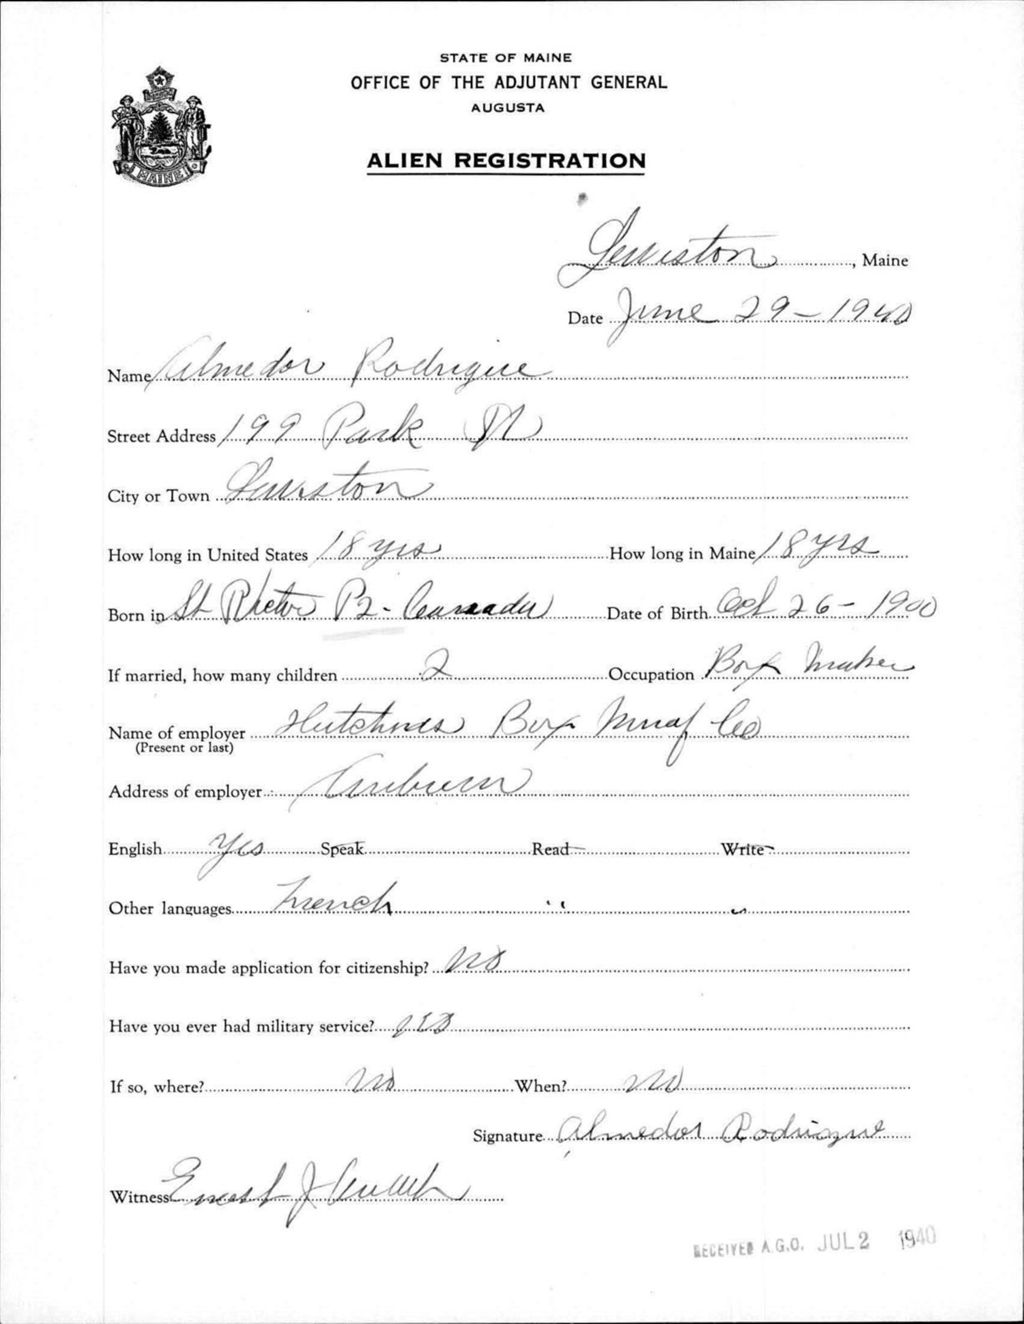 STATE OF MAINE
OFFICE OF THE ADJUTANT GENERAL
AUGUSTA
ALIEN REGISTRATION
MAINE
Lewiston, Maine
Date June 29 - 1940
Name Almedor Rodrigue
Street Address 199 Park St
City or Town Lewiston
How long in United States 18 yrs How long in Maine 18 yrs
Born in St Victor P2 - Canada Date of Birth Oct 26 - 1900
If married, how many children 2 Occupation Box Maker
Name of employer Hutchins Box Mnaf Co
(Present or last)
Address of employer Auburn
English Yes Speak Read Write
Other languages French " "
Have you made application for citizenship? No
Have you ever had military service? yes
If so, where? No When? No
Signature Almedor Rodrigue
Witness Ernest J
RECEIVED A.G.O. JUL 2 1940